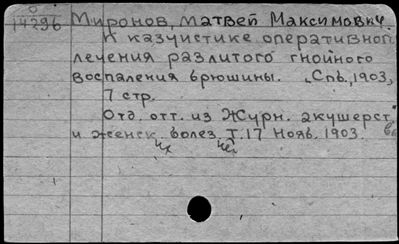 14296 Миронов, Матвей Максимович.
К казуистике оперативного
лечения разлитого гнойного
воспаления брюшины. Спб., 1903,
7 стр.
Отд. отт. из Журн. акушерст.
и женск. болез. Т.17 Нояб. 1903.
их ней